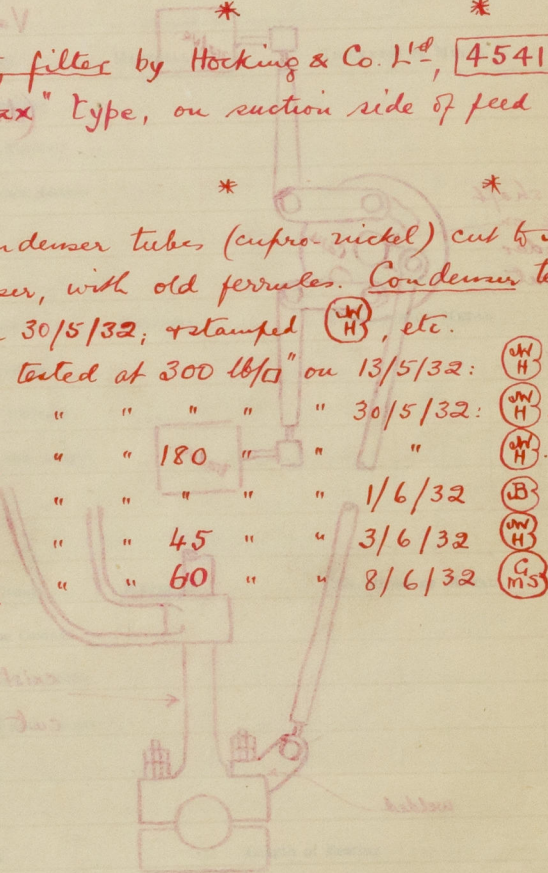 * *
filter by Hocking & Co. Ltd, 4541
" type, on suction side of feed
* *
denser tubes (cupro-nickel) cut to
ser, with old ferrules. Condenser te
30/5/32; & stamped WH, etc.
tested at 300 lb/□" on 13/5/32: WH
" " " " " 30/5/32: WH
" " 180 " " " WH.
" " " " " 1/6/32 B
" " 45 " " 3/6/32 WH
" " 60 " " 8/6/32 GMS
welded